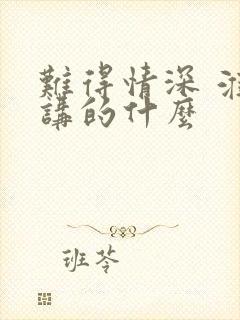 難得情深
講的什麼
班苓